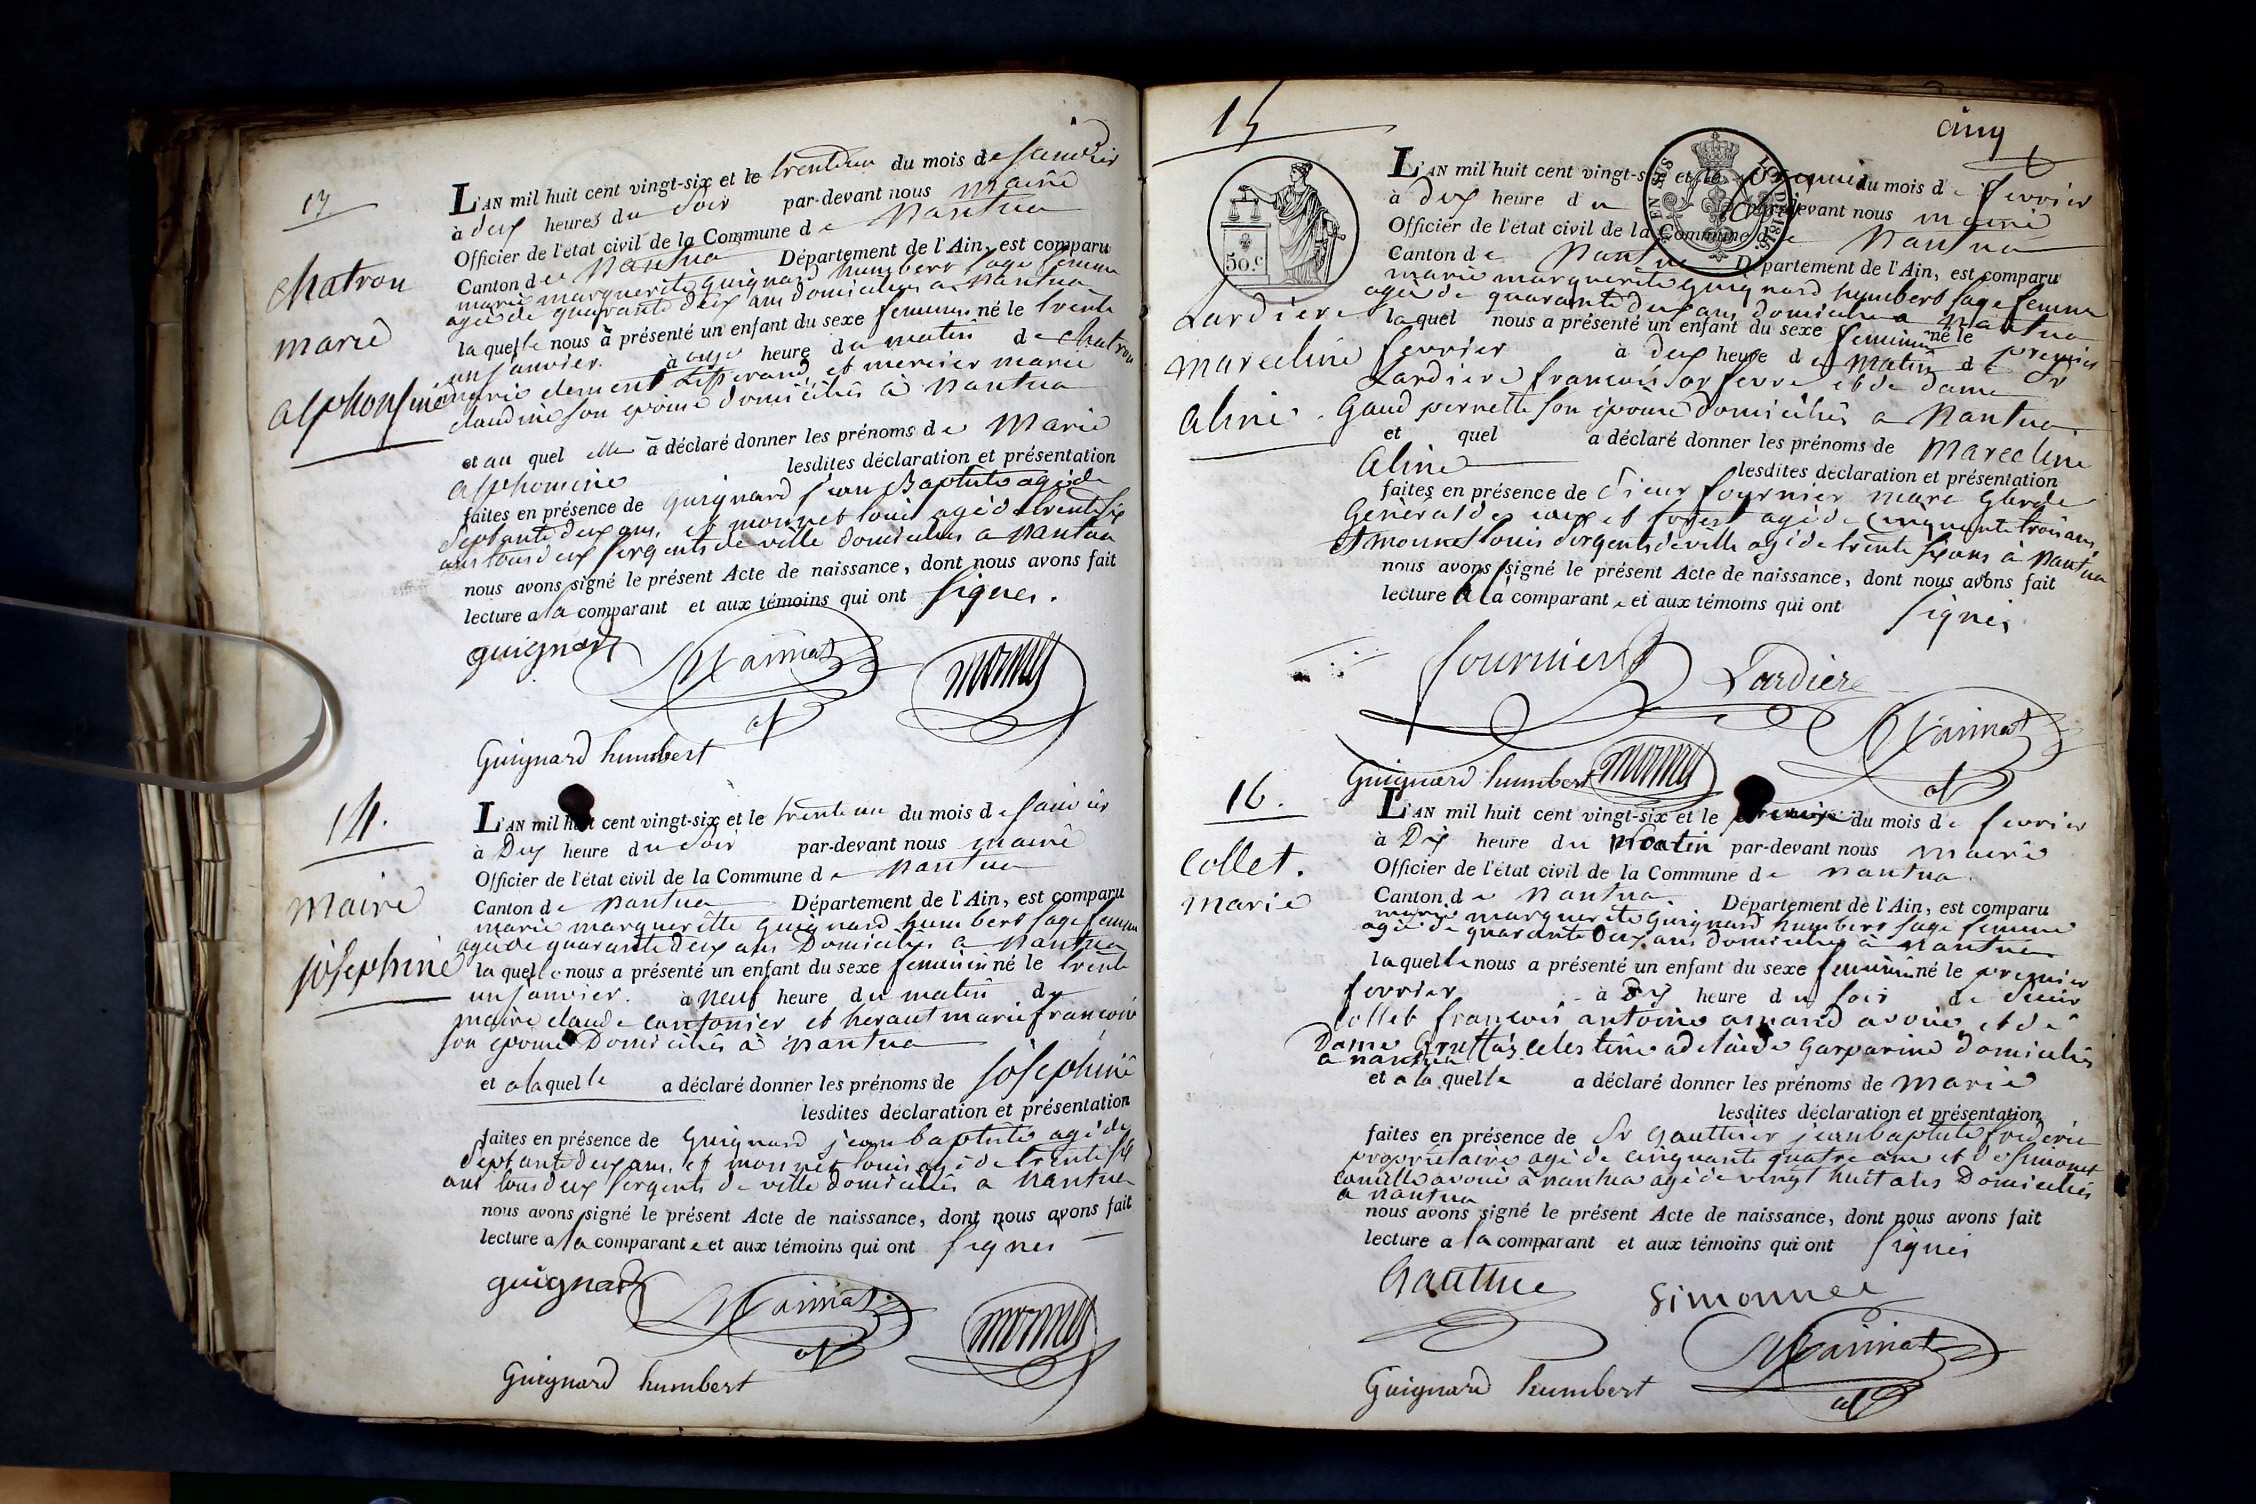 13
L'AN mil huit cent vingt-six et le trente un du mois de janvier
à deux heures du soir par-devant nous maire
Officier de l'état civil de la Commune de Nantua
Canton de Nantua Département de l'Ain, est comparu
marie marguerite guignard humbert sage femme
agée de quarante deux ans domiciliée a Nantua
laquelle nous à présenté un enfant du sexe feminin né le trente
un janvier. à onze heure du matin de chatron
marie clement et mercier marie
claudine son epouse domiciliés à Nantua
et au quel elle à déclaré donner les prénoms de Marie
alphonsine lesdites déclaration et présentation
faites en présence de guignard jean Baptiste agé de
septante deux ans, et monnet louis agé de trente six
ans tous deux sergents de ville domiciliés a Nantua
nous avons signé le présent Acte de naissance, dont nous avons fait
lecture a la comparant et aux témoins qui ont signés.
chatron
marie
alphonsine
guignard
monnet
Guignard humbert
14.
L'AN mil huit cent vingt-six et le trente un du mois de janvier
à Deux heure du soir par-devant nous maire
Officier de l'état civil de la Commune de Nantua
Canton de Nantua Département de l'Ain, est comparu
marie marguerite guignard humbert sage femme
agée de quarante deux ans Domiciliée a Nantua
laquelle nous a présenté un enfant du sexe feminin né le trente
un janvier. à neuf heure du matin de
maire claude cantonier et heraut marie françoise
son epouse Domiciliés à Nantua
et a laquelle a déclaré donner les prénoms de joséphine
lesdites déclaration et présentation
faites en présence de Guignard jean baptiste agé de
septante deux ans, et monnet louis agé de trente six
ans tous deux sergents de ville domiciliés a Nantua
nous avons signé le présent Acte de naissance, dont nous avons fait
lecture a la comparante et aux témoins qui ont signés
maire
joséphine
guignard
monnet
Guignard humbert
15
cinq
50 c.
L'AN mil huit cent vingt-six et le premier du mois de fevrier
à dix heure du par-devant nous maire
Officier de l'état civil de la Commune de Nantua
Canton de Nantua Département de l'Ain, est comparu
marie marguerite guignard humbert sage femme
agée de quarante deux ans domiciliée a Nantua
laquel nous a présenté un enfant du sexe feminin né le premier
fevrier à deux heure du matin de Sr
Lardiere francois orfevre et de dame
Gaud pernette son epouse domiciliés a Nantua
et quel a déclaré donner les prénoms de Marecline
Aline lesdites déclaration et présentation
faites en présence de sieur fournier marc garde
General des eaux et forest agé de cinquante trois ans
et monnet louis sergent de ville agé de trente six ans à Nantua
nous avons signé le présent Acte de naissance, dont nous avons fait
lecture a la comparante et aux témoins qui ont signés
Lardiere
Marecline
Aline.
fournier
Lardiere
Guignard humbert
monnet
16.
L'AN mil huit cent vingt-six et le premier du mois de fevrier
à Dix heure du Matin par-devant nous maire
Officier de l'état civil de la Commune de Nantua.
Canton de Nantua. Département de l'Ain, est comparu
marie marguerite guignard humbert sage femme
agée de quarante deux ans domiciliée à Nantua
laquelle nous a présenté un enfant du sexe feminin né le premier
fevrier à Dix heure du soir de sieur
Collet françois antoine amand avoué et de
Dame celestine adelaide Gasparine domiciliés
a nantua
et a la quelle a déclaré donner les prénoms de marie
lesdites déclaration et présentation
faites en présence de Sr gauthier jean baptiste frederic
propriétaire agé de cinquante quatre ans et de simonet
camille avoué à nantua agé de vingt huit ans Domiciliés
a nantua
nous avons signé le présent Acte de naissance, dont nous avons fait
lecture a la comparant et aux témoins qui ont signés
Collet.
marie
Gauthier
Simonnet
Guignard humbert